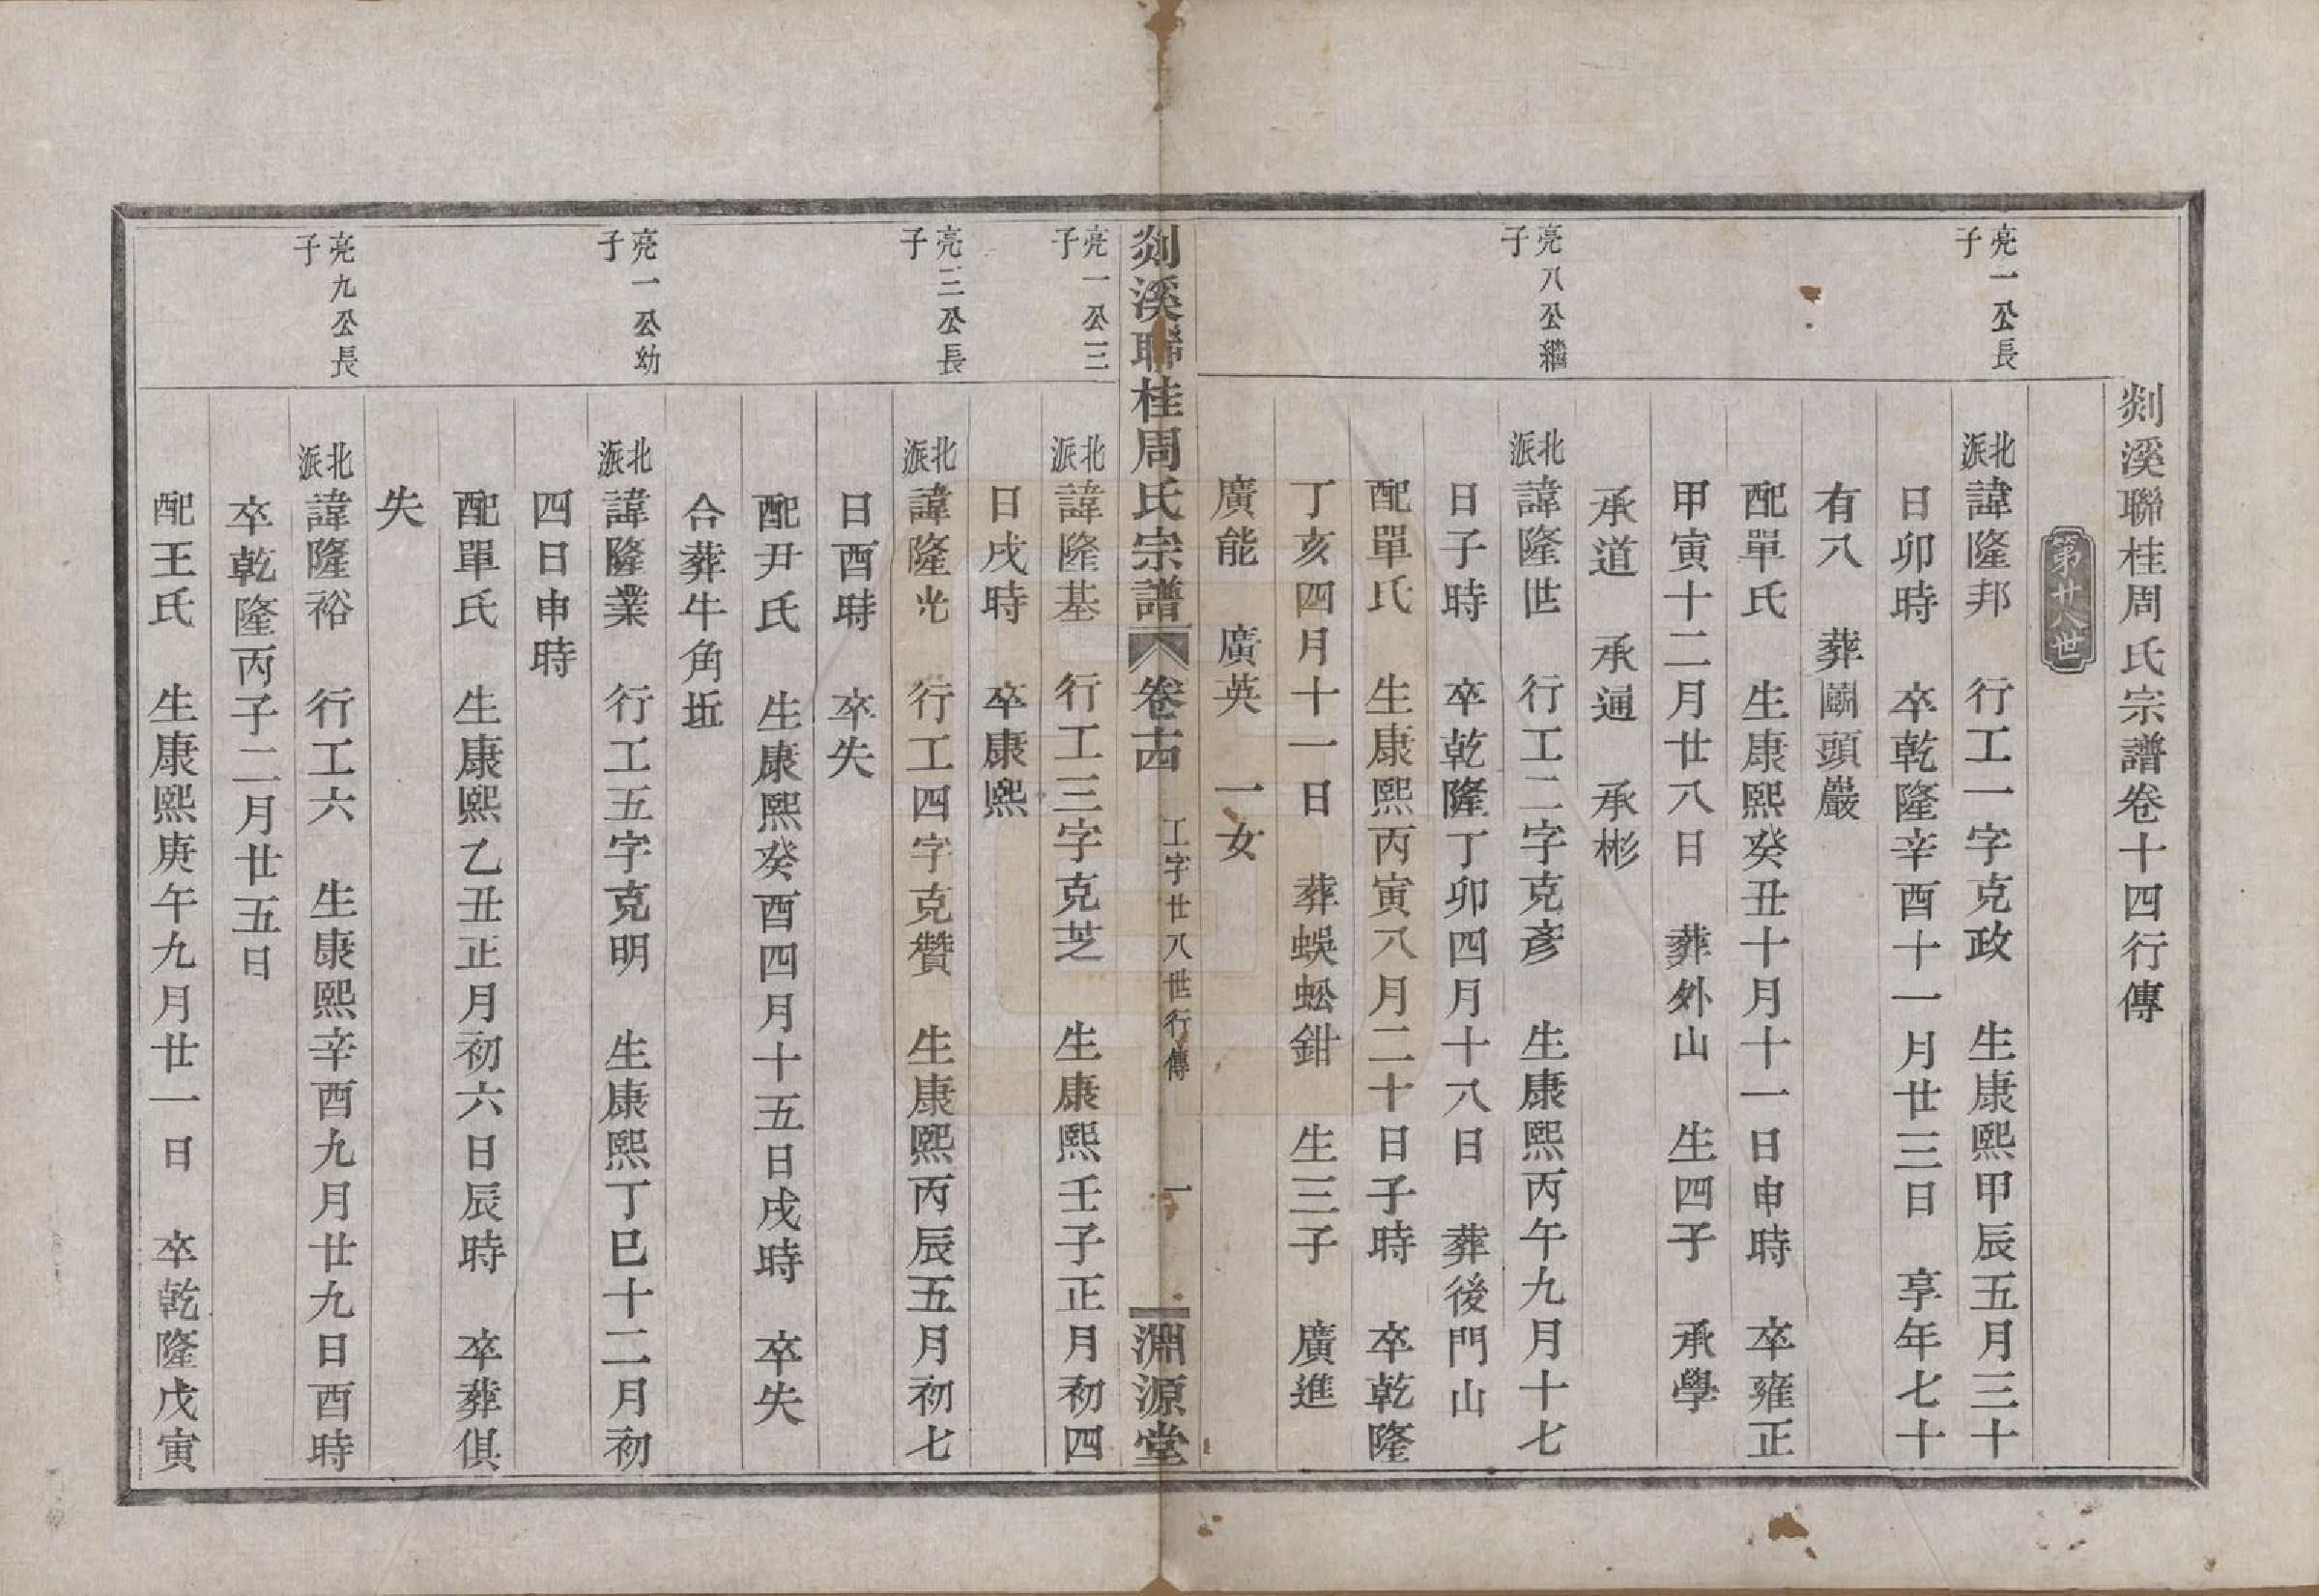 剡溪聯桂周氏宗譜卷十四行傳
第廿八世
亮一公長子
北派諱隆邦　行工一字克政　生康熙甲辰五月三十
日卯時　卒乾隆辛酉十一月廿三日　享年七十
有八　葬關頭嚴
配單氏　生康熙癸丑十月十一日申時　卒雍正
甲寅十二月廿八日　葬外山　生四子　承學
承道　承通　承彬
亮八公繼子
北派諱隆世　行工二字克彥　生康熙丙午九月十七
日子時　卒乾隆丁卯四月十八日　葬後門山
配單氏　生康熙丙寅八月二十日子時　卒乾隆
丁亥四月十一日　葬蜈蚣鉗　生三子　廣進
廣能　廣英　一女
剡溪聯桂周氏宗譜　卷十四　工字廿八世行傳　一　淵源堂
亮一公三子
北派諱隆基　行工三字克芝　生康熙壬子正月初四
日戌時　卒康熙
亮三公長子
北派諱隆光　行工四字克贊　生康熙丙辰五月初七
日酉時　卒失
配尹氏　生康熙癸酉四月十五日戌時　卒失
合葬牛角坵
亮一公幼子
北派諱隆業　行工五字克明　生康熙丁巳十二月初
四日申時
配單氏　生康熙乙丑正月初六日辰時　卒葬俱
失
亮九公長子
北派諱隆裕　行工六　生康熙辛酉九月廿九日酉時
卒乾隆丙子二月廿五日
配王氏　生康熙庚午九月廿一日　卒乾隆戊寅